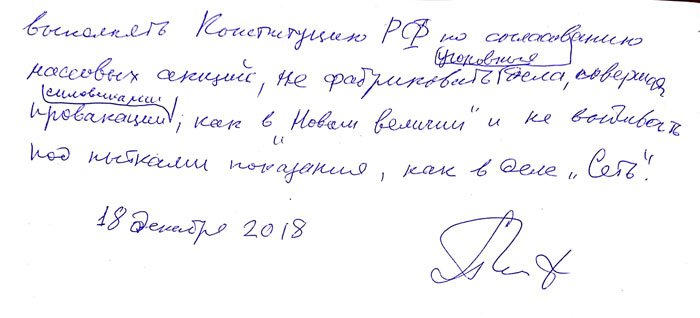 выполнять Конституцию РФ по согласованию
уголовные
массовых акций, не фабриковать дела, совершая
силовиками
провакации, как в "Новом величии" и не выбивать
под пытками показания, как в деле „Сеть".
18 декабря 2018